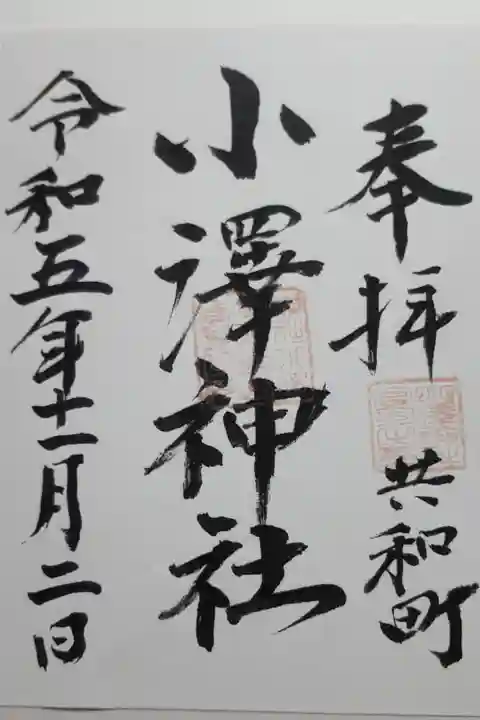 奉拝
共和町
小澤神社
令和五年十一月二日